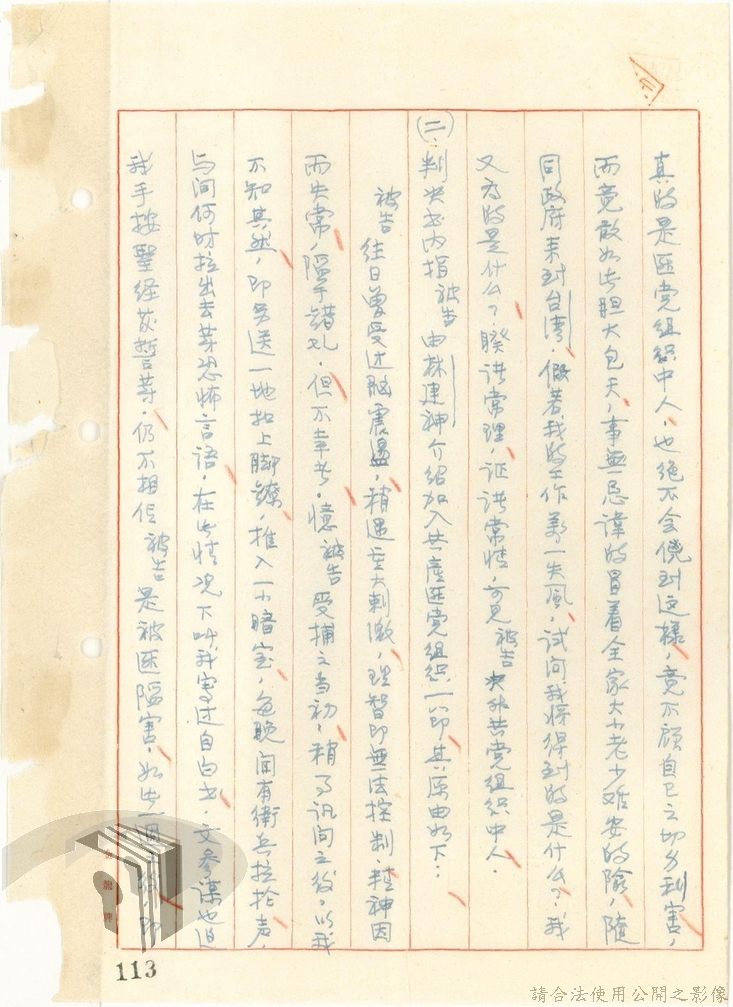 真的是匪党組織中人，也绝不会傻到这樣，竟不顧自己之切身利害，
而竟敢如此胆大包天，事無忌諱的冒着全家大小老少难安的險，隨
同政府来到台湾．假若我的工作萬一失風，試问我将得到的是什么？我
又为的是什么？睽諸常理，证諸常情，可見被告决非共党組織中人．
(二)．判决书内指被告由林建神介绍加入共產匪党組織一節其原由如下：
被告往日曾受过脑震盪，稍遇重大刺激，理智即無法控制，精神因
而失常，陷于錯乱．但不幸者，憶被告受捕之当初，稍事訊问之後，以我
不知其然，即另送一地扣上脚鐐，推入一小暗室，每晚闻有衛兵拉枪声，
与问何时拉出去等恐怖言語，在此情况下叫我写过自白书．文参谋也迫
我手按聖经发誓等．仍不相信被告是被匪陷害，如此一 即
113
請合法使用公開之影像